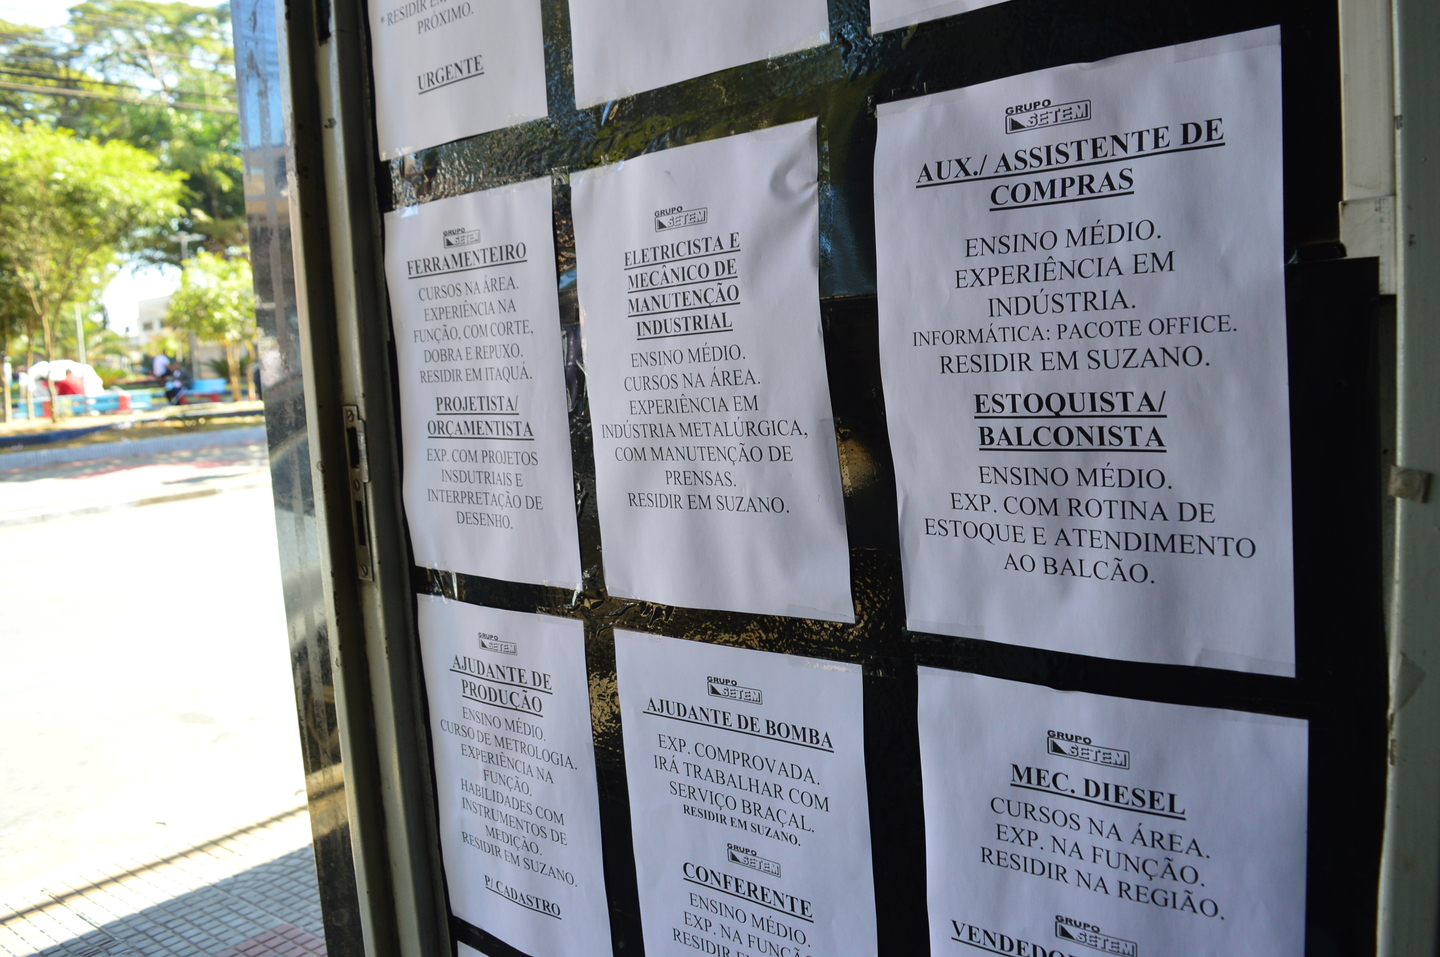 * RESIDIR EM
PRÓXIMO.
URGENTE
GRUPO
SETEM
FERRAMENTEIRO
CURSOS NA ÁREA.
EXPERIÊNCIA NA
FUNÇÃO, COM CORTE,
DOBRA E REPUXO.
RESIDIR EM ITAQUÁ.
PROJETISTA/
ORÇAMENTISTA
EXP. COM PROJETOS
INSDUTRIAIS E
INTERPRETAÇÃO DE
DESENHO.
GRUPO
SETEM
ELETRICISTA E
MECÂNICO DE
MANUTENÇÃO
INDUSTRIAL
ENSINO MÉDIO.
CURSOS NA ÁREA.
EXPERIÊNCIA EM
INDÚSTRIA METALÚRGICA,
COM MANUTENÇÃO DE
PRENSAS.
RESIDIR EM SUZANO.
GRUPO
SETEM
AUX./ ASSISTENTE DE
COMPRAS
ENSINO MÉDIO.
EXPERIÊNCIA EM
INDÚSTRIA.
INFORMÁTICA: PACOTE OFFICE.
RESIDIR EM SUZANO.
ESTOQUISTA/
BALCONISTA
ENSINO MÉDIO.
EXP. COM ROTINA DE
ESTOQUE E ATENDIMENTO
AO BALCÃO.
GRUPO
SETEM
AJUDANTE DE
PRODUÇÃO
ENSINO MÉDIO.
CURSO DE METROLOGIA.
EXPERIÊNCIA NA
FUNÇÃO.
HABILIDADES COM
INSTRUMENTOS DE
MEDIÇÃO.
RESIDIR EM SUZANO.
P/ CADASTRO
GRUPO
SETEM
AJUDANTE DE BOMBA
EXP. COMPROVADA.
IRÁ TRABALHAR COM
SERVIÇO BRAÇAL.
RESIDIR EM SUZANO.
GRUPO
SETEM
CONFERENTE
ENSINO MÉDIO.
EXP. NA FUNÇÃO
RESIDIR EM
GRUPO
SETEM
MEC. DIESEL
CURSOS NA ÁREA.
EXP. NA FUNÇÃO.
RESIDIR NA REGIÃO.
GRUPO
SETEM
VENDEDO